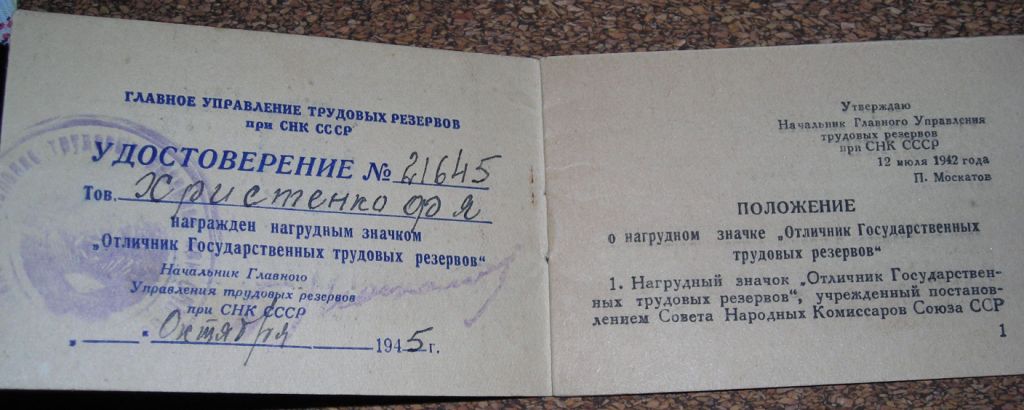 ГЛАВНОЕ УПРАВЛЕНИЕ ТРУДОВЫХ РЕЗЕРВОВ
при СНК СССР
УДОСТОВЕРЕНИЕ № 21645
Тов. Христенко Ф Я
награжден нагрудным значком
„Отличник Государственных трудовых резервов“
Начальник Главного
Управления трудовых резервов
при СНК СССР
„ “ Октября 1945 г.
Утверждаю
Начальник Главного Управления
трудовых резервов
при СНК СССР
12 июля 1942 года
П. Москатов
ПОЛОЖЕНИЕ
о нагрудном значке „Отличник Государственных
трудовых резервов“
1. Нагрудный значок „Отличник Государствен-
ных трудовых резервов“, учрежденный постанов-
лением Совета Народных Комиссаров Союза ССР
1